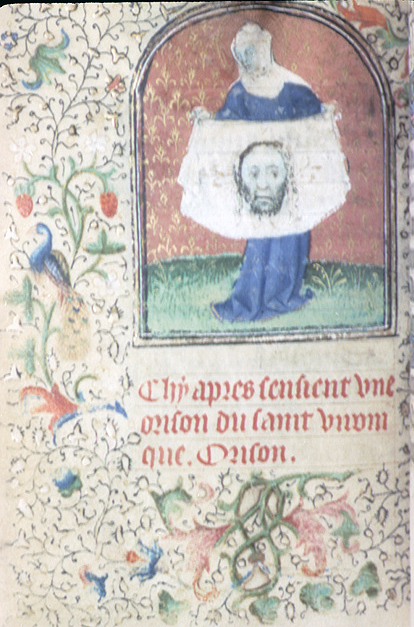 Chy apres sensieut vne
orison du saint vnom
que. Orison.